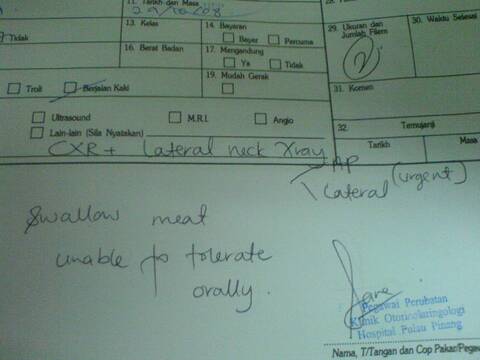 11. Tarikh dan Masa
29/10/08
13. Kelas
14. Bayaran
Bayar Percuma
29. Ukuran dan
Jumlah Filem
2
30. Waktu Selesai
Tidak
16. Berat Badan
17. Mengandung
Ya Tidak
19. Mudah Gerak
31. Komen
Troli Berjalan Kaki
Ultrasound M.R.I. Angio
Lain-lain (Sila Nyatakan)
32. Temujanji
Tarikh Masa
CXR + Lateral neck Xray
AP
Lateral (urgent)
Swallow meat
unable to tolerate
orally.
Pegawai Perubatan
Klinik Otorinolaringologi
Hospital Pulau Pinang
Nama, T/Tangan dan Cop Pakar/Pega